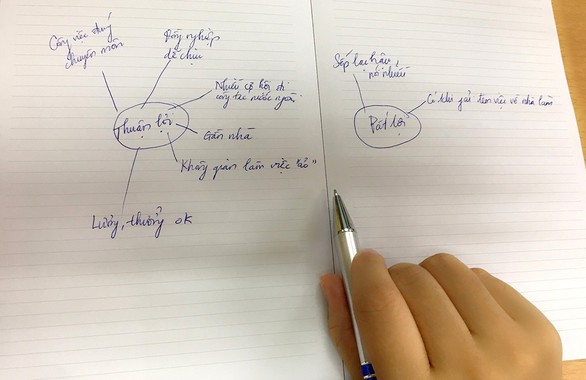 Công việc đúng
chuyên môn
Đồng nghiệp
dễ chịu
Nhiều cơ hội đi
công tác nước ngoài
Thuận lợi
Gần nhà
Không gian làm việc "ảo"
Lương, thưởng ok
Sếp lạc hậu,
nói nhiều
Có khi phải đem việc về nhà làm
Bất lợi